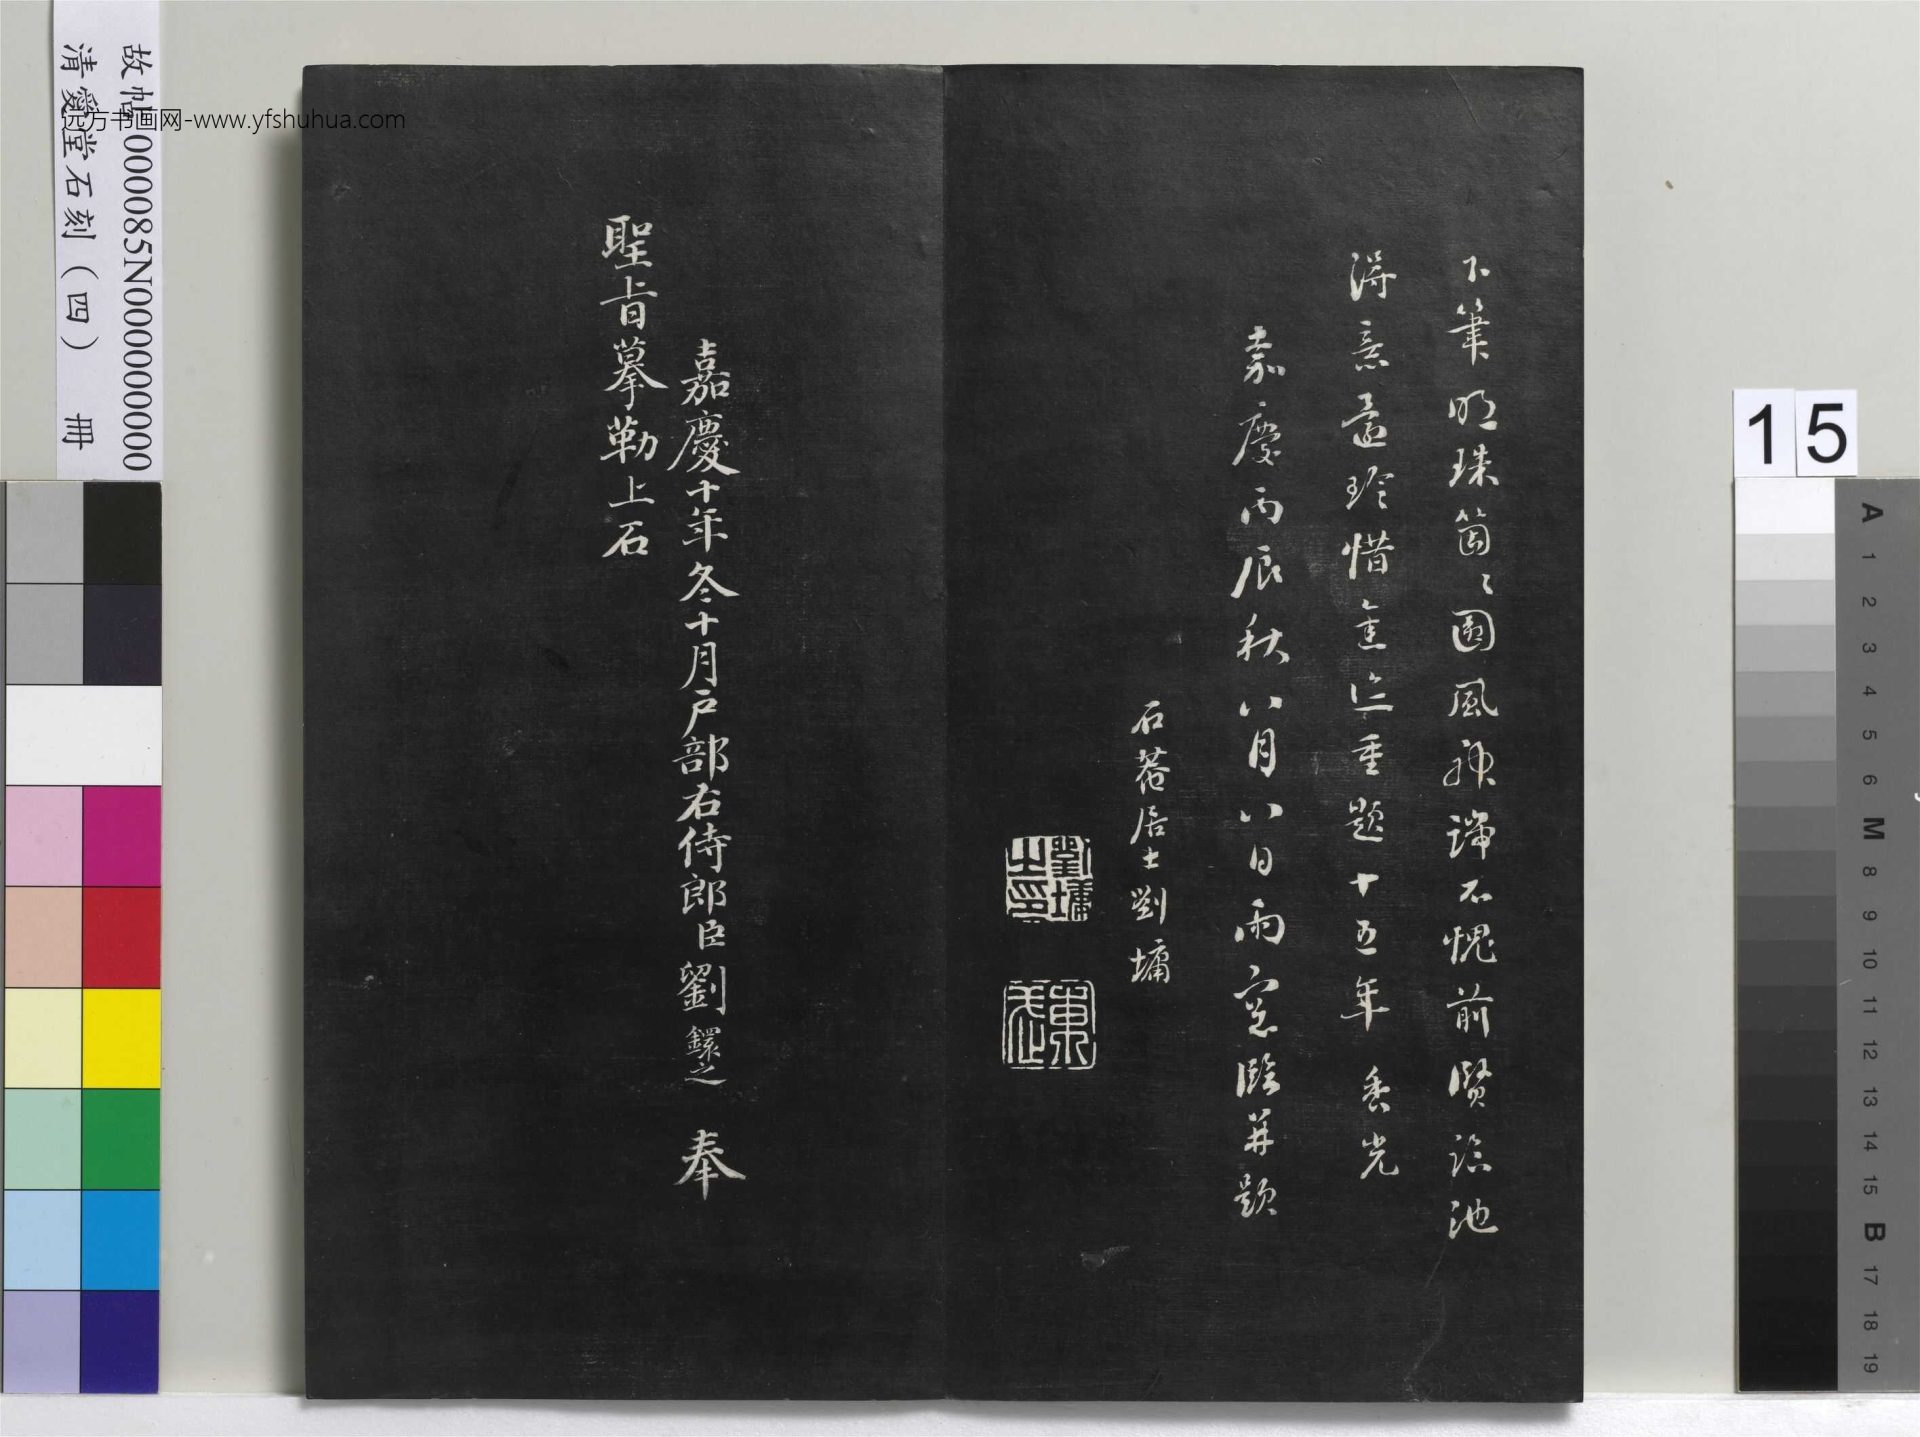 下筆明珠箇〻圓風神端不愧前賢臨池
得意還珍惜重題十五年 香光
嘉慶丙辰秋八月八日雨窓臨并題
石菴居士劉墉
劉墉之印
東武
嘉慶十年冬十月戶部右侍郎臣劉鐶之 奉
聖旨摹勒上石
故帖000085N000000000
清愛堂石刻(四) 冊
远方书画网-www.yfshuhua.com
15
A
1
2
3
4
5
6
M
8
9
10
11
12
13
14
15
B
17
18
19